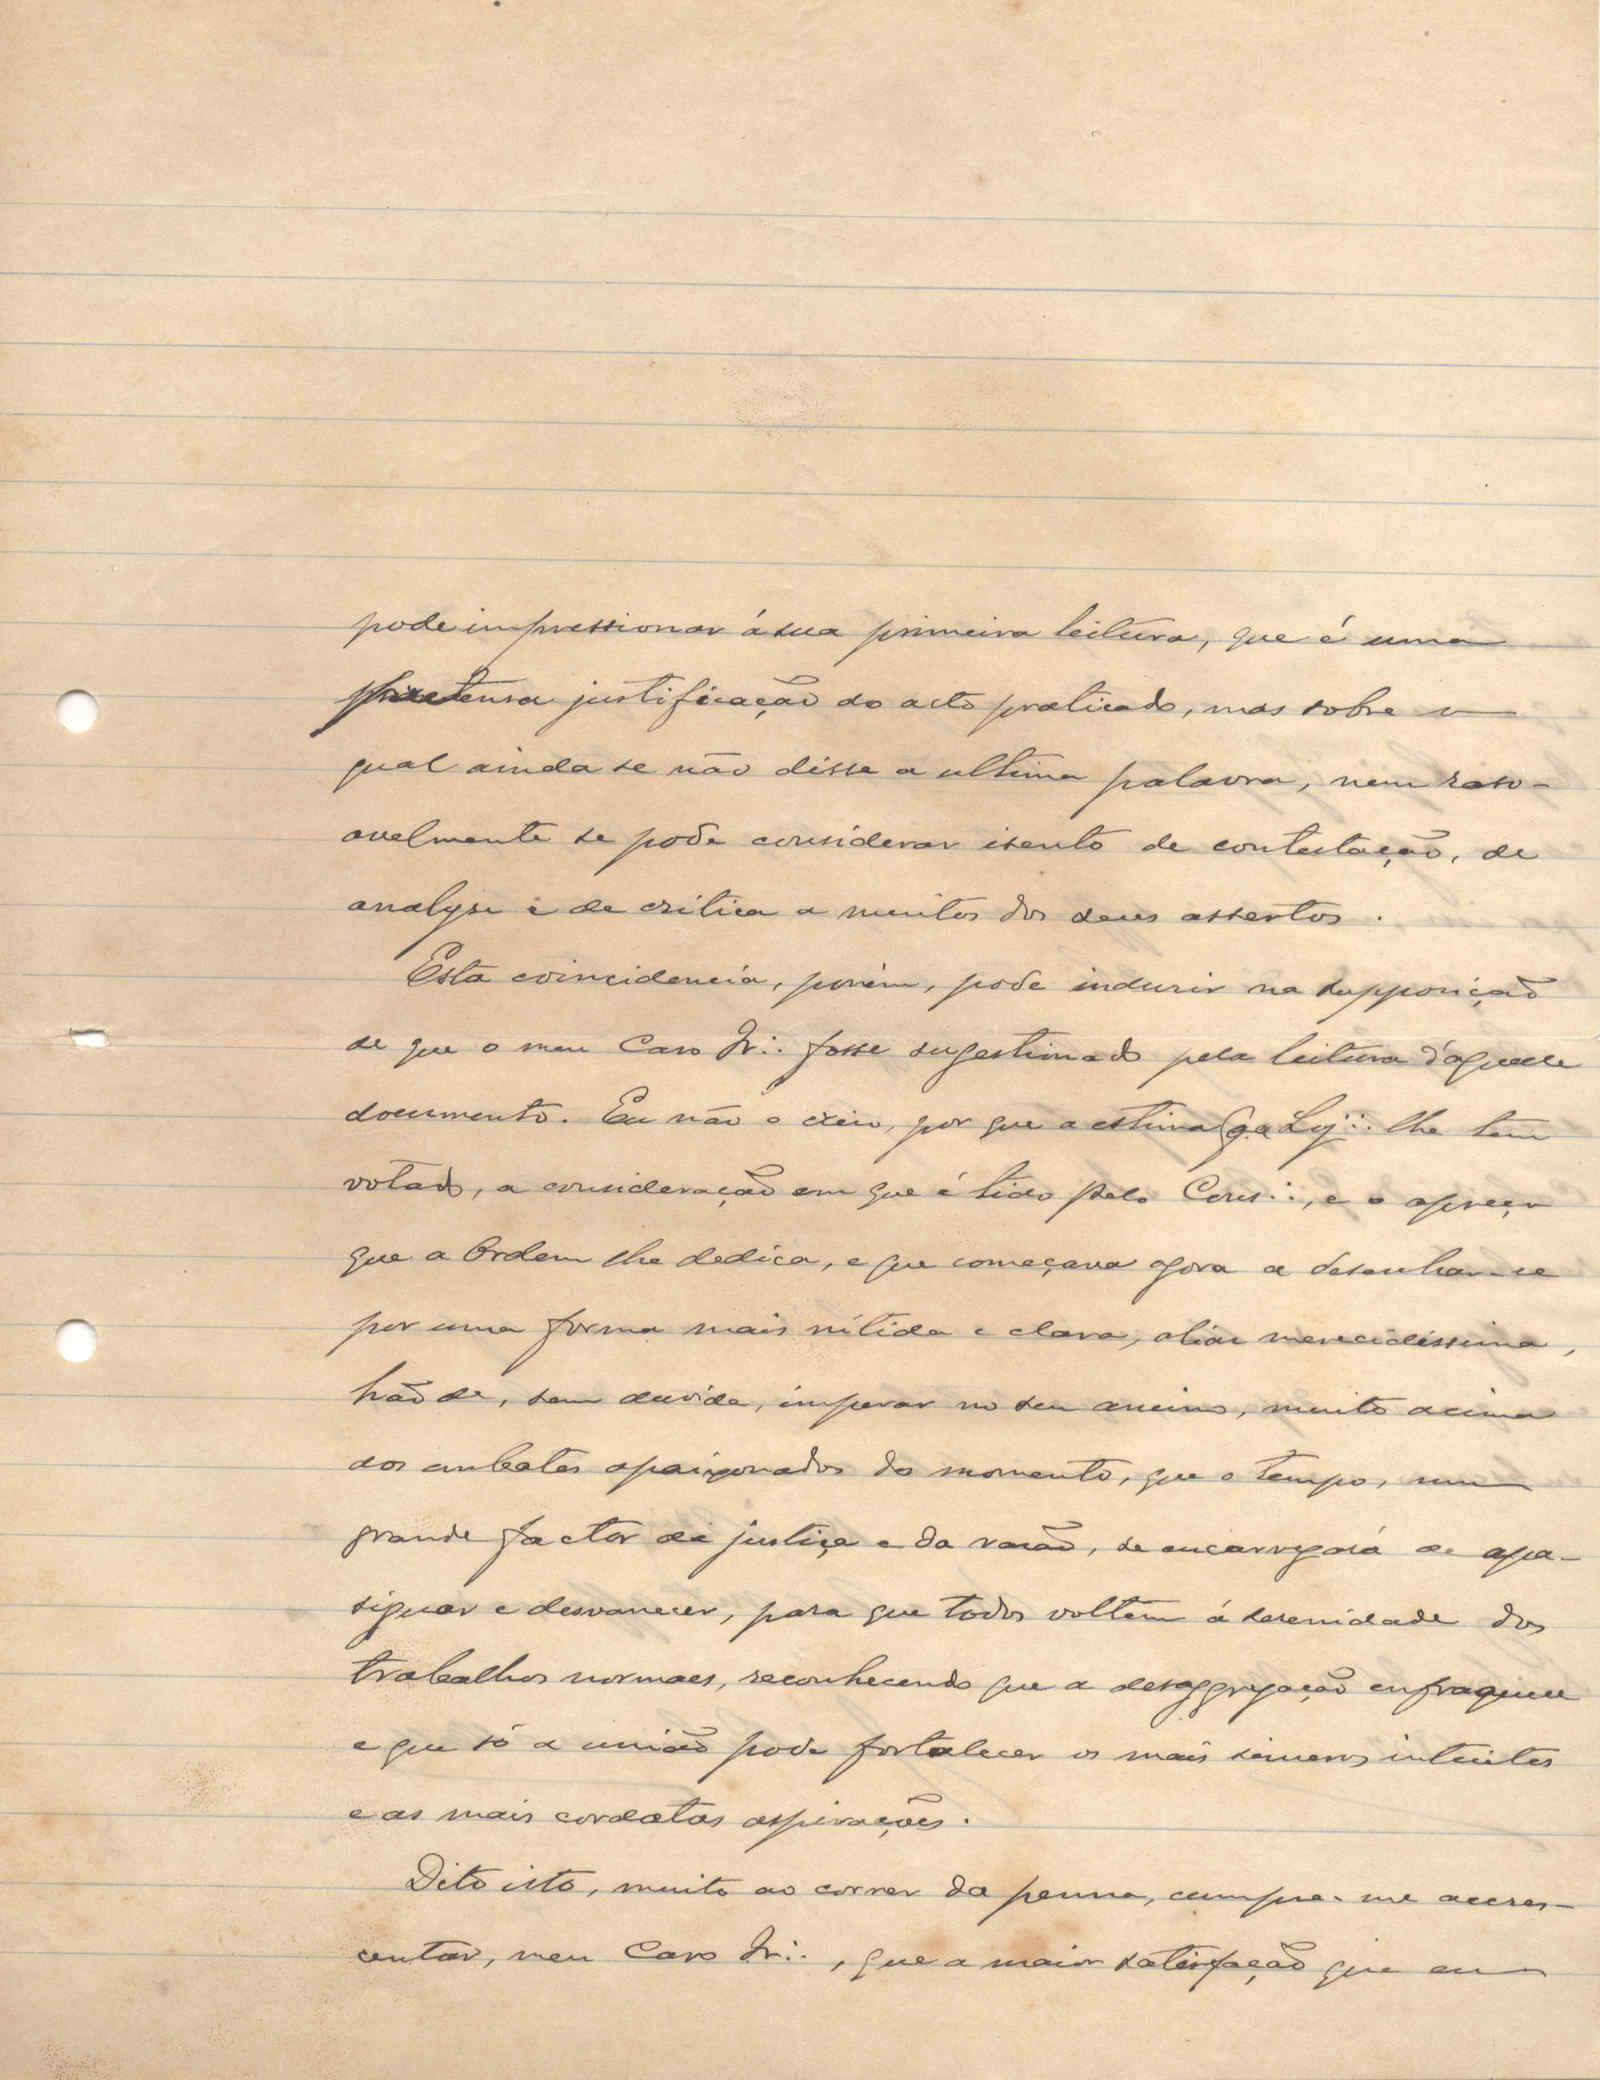 pode impressionar á sua primeira leitura, que é uma
pretensa justificação do acto praticado, mas sobre o
qual ainda se não disse a ultima palavra, nem raso-
avelmente se pode considerar isento de contestação, de
analyse e de critica a muitos dos seus assertos.
Esta coincidencia, porém, pode induzir na supposição
de que o meu Caro Ir∴ fosse sugestionado pela leitura d'aquelle
documento. Eu não o creio, por que a estima q a Loj∴ lhe tem
votado, a consideração em que é tido pelo Cons∴, e o apreço
que a Ordem lhe dedica, e que começava agora a desenhar-se
por uma forma mais nitida e clara, aliás merecidissima,
hão de, sem duvida, imperar no seu animo, muito acima
dos embates apaixonados do momento, que o tempo, num
grande factor de justiça e da rasão, se encarregará de apa-
siguar e desvanecer, para que todos voltem á serenidade dos
trabalhos normaes, reconhecendo que a desaggregação enfraquece
e que só a união pode fortalecer os mais sinceros intuitos
e as mais cordatas aspirações.
Dito isto, muito ao correr da penna, cumpre-me accres-
centar, meu Caro Ir∴, que a maior satisfação que eu